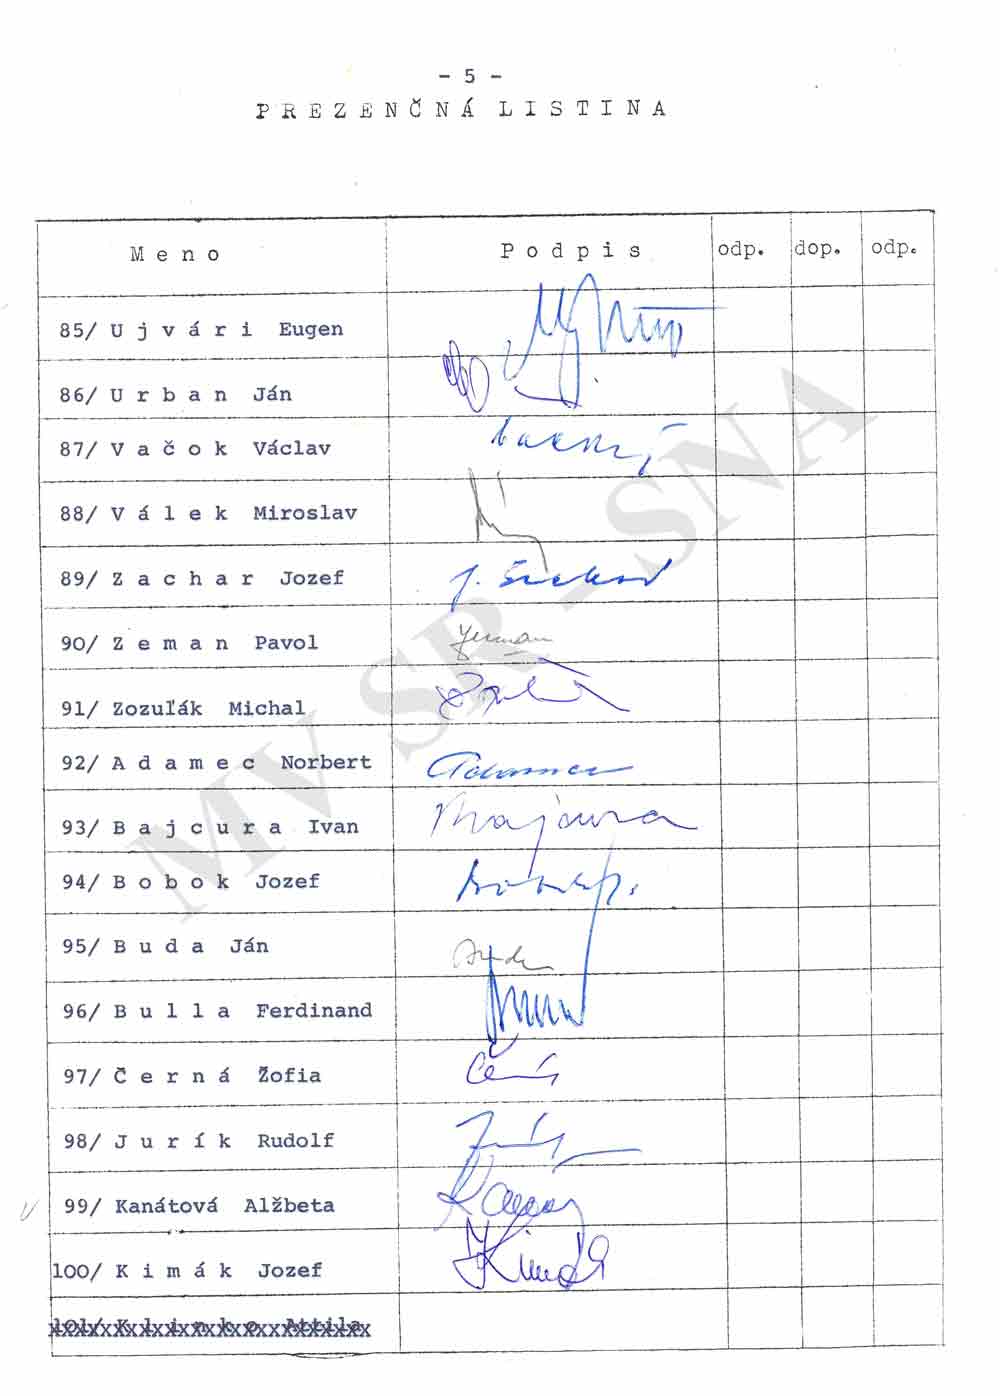 - 5 -
PREZENČNÁ LISTINA
Meno Podpis odp. dop. odp.
85/ Ujvári Eugen
86/ Urban Ján
87/ Vačok Václav
88/ Válek Miroslav
89/ Zachar Jozef
90/ Zeman Pavol Zeman
91/ Zozuľák Michal
92/ Adamec Norbert Adamec
93/ Bajcura Ivan Bajcura
94/ Bobok Jozef
95/ Buda Ján
96/ Bulla Ferdinand
97/ Černá Žofia
98/ Jurík Rudolf
99/ Kanátová Alžbeta
100/ Kimák Jozef Kimák
101/ Klinko Attila
MV SR - SNA